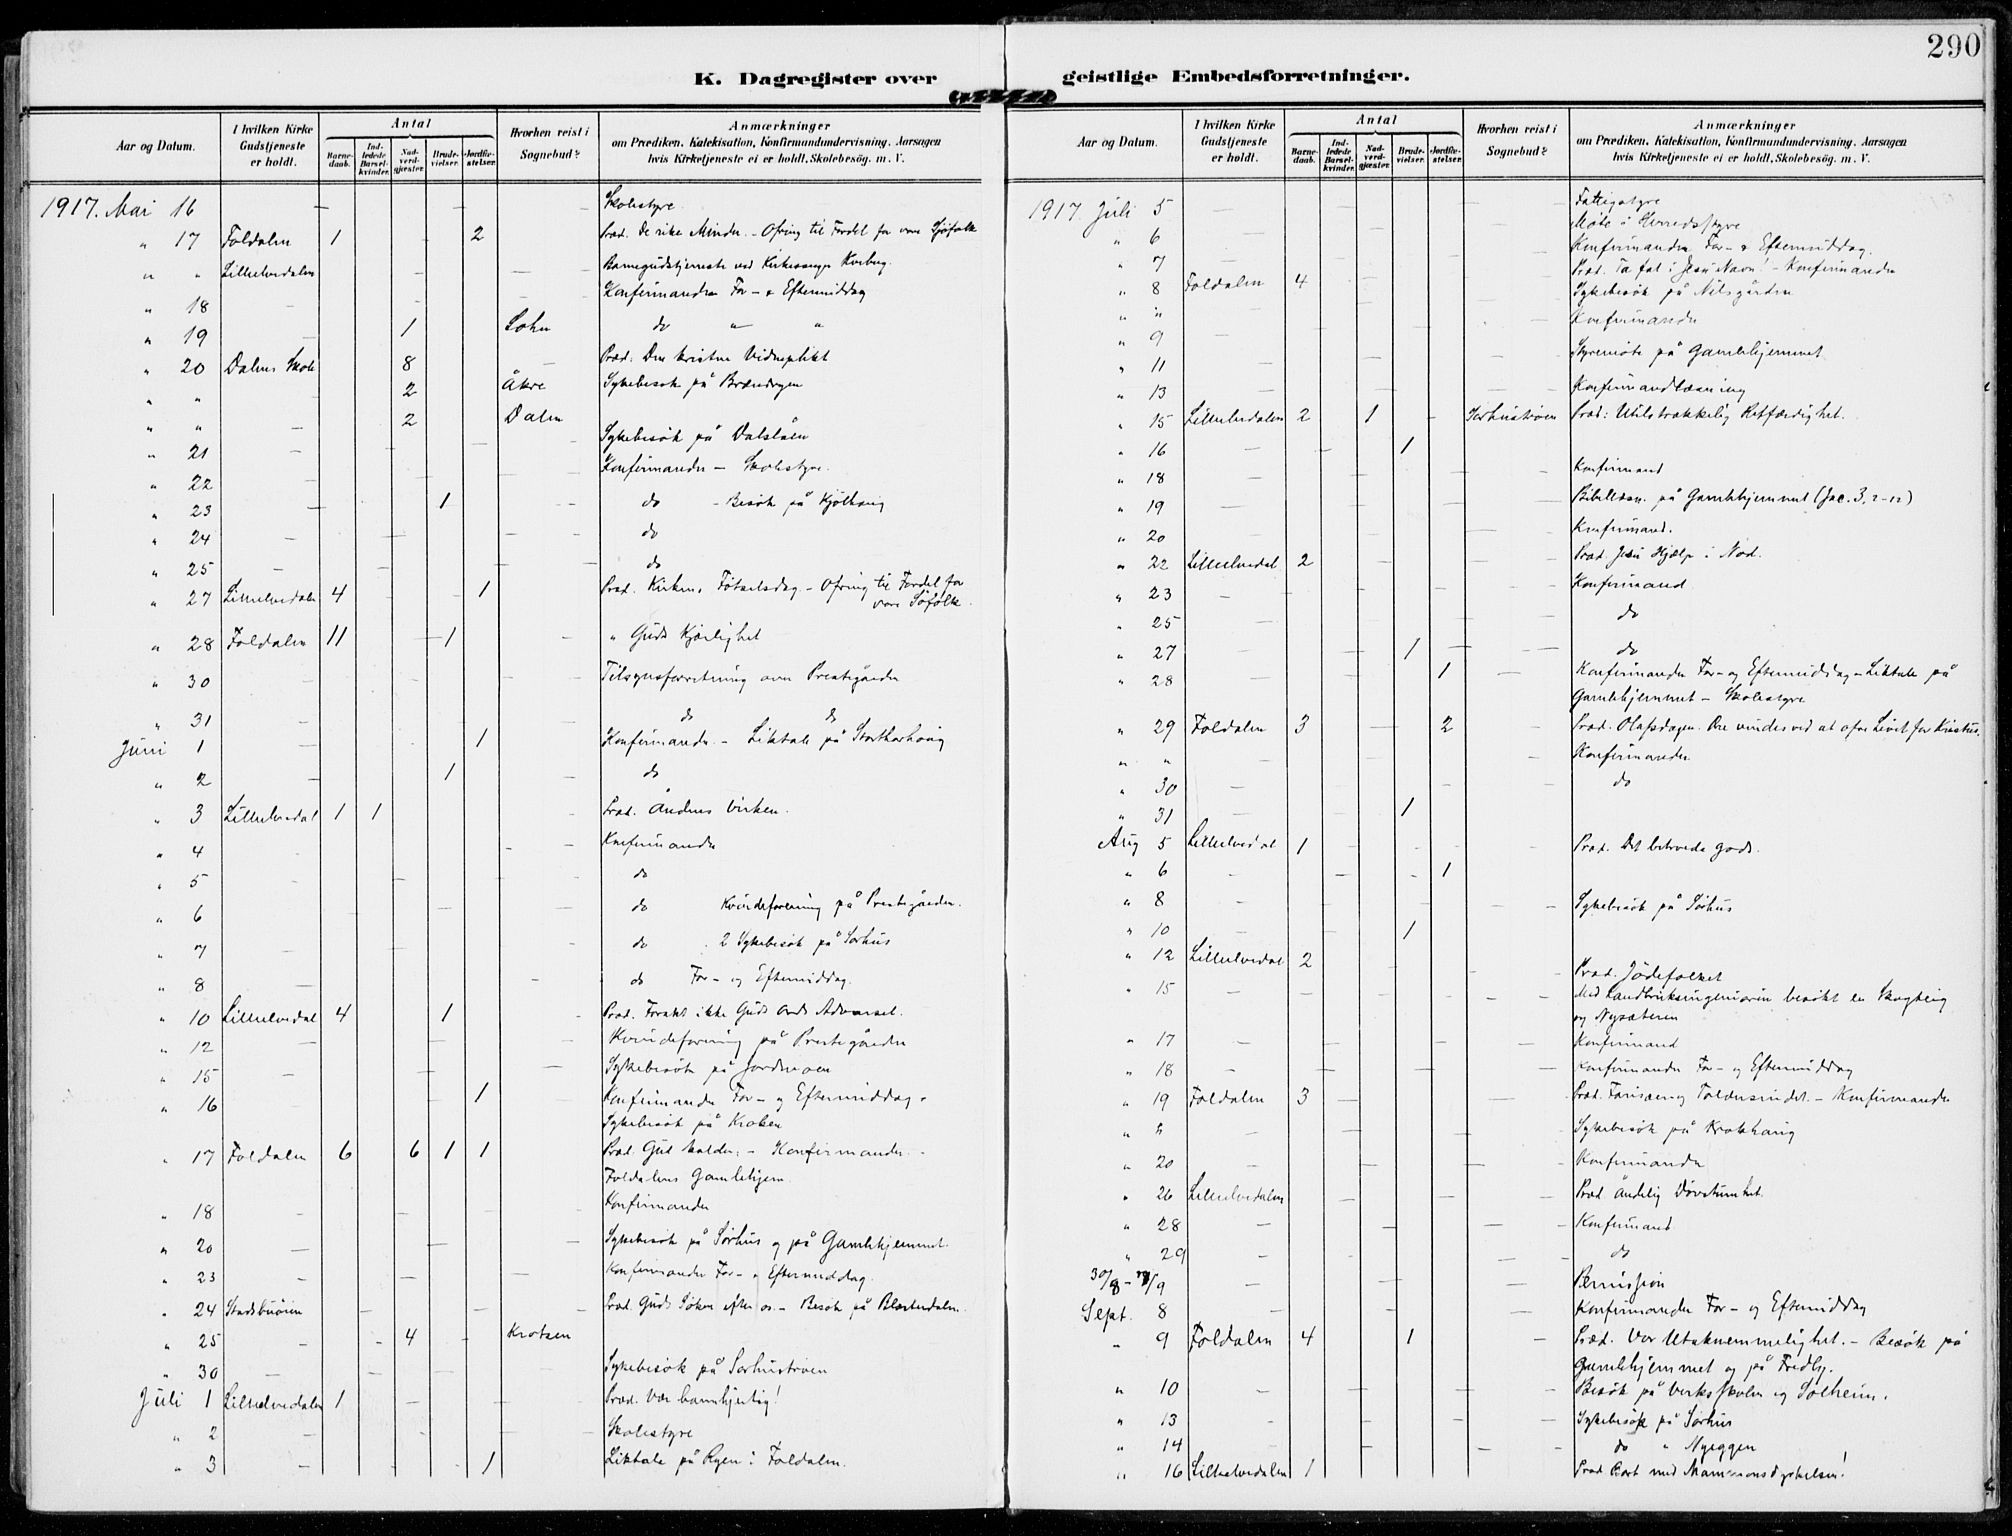 290
K. Dagregister over geistlige Embedsforretninger.
Aar og Datum. I hvilken Kirke Gudstjeneste er holdt. Antal Barnedaab. Indledede Barselkvinder. Nadverdgjæster. Brudevielser. Jordfæstelser. Hvorhen reist i Sognebud? Anmærkninger om Prædiken, Katekisation, Konfirmandundervisning, Aarsagen hvis Kirketjeneste ei er holdt, Skolebesög. m. V.
1917. Mai 16 — — Skolestyre
" 17 Foldalen 1 2 Præd. De rike Minder. - Ofring til Fordel for vore Sjøfolk
" " Lilleelvedalen — Barnegudstjeneste ved Kirkesanger
" 18 — — Konfirmander For- & Eftermiddag
" 19 — 1 do " "
" 20 Dalens Skole 8 — Præd: Den kristne Vidnepligt
" " — 2 Åkre Sykebesøk på
" " — 2 Dalen
" 21 — — Sykebesøk på Dalslåen
" 22 — — Konfirmander - Skolestyre.
" 23 — 1 — do - Besøk på Kjølhaug
" 24 — — do
" 25 — — do
" 27 Lilleelvedalen 4 1 Præd. Kirkens Fötselsdag - Ofring til Fordel for
vore Søfolk.
" 28 Foldalen 11 1 " Guds Kjærlighet
" 30 — — Tilsynsforretning over Prestegården
" 31 — — do do
Juni 1 — 1 Konfirmander - Liktale på
" 2 — 1 do
" 3 Lilleelvedal 1 1 Præd. Åndens Virken.
" 4 — Konfirmander
" 5 — do
" 6 — do Kvindeforening på Prestegården.
" 7 — do 2 Sykebesøk på Sørhus
" 8 — do For- og Eftermiddag.
" 10 Lilleelvedal 4 1 Præd. Foragt ikke Guds Ords Advarsel.
" 12 — Kvindeforening på Prestegården
" 15 — Sykebesøk på Jordmoen
" 16 1 Konfirmander For- og Eftermiddag.
Sykebesøk på Kroken
" 17 Foldalen 6 6 1 1 Præd. Gud kalder. - Konfirmander. -
Foldalens Gamlehjem
" 18 — Konfirmander
" 20 — Sykebesøk på Sørhus og på Gamlehjemmet.
" 23 — Konfirmander For- & Eftermiddag.
" 24 Præd. Guds Søken efter os. - Besøk på
" 25 — 4
" 30 — Sykebesøk på Sørhustrøen
Juli 1 Lilleelvedalen 1 Præd. Vær barmhjertig!
" 2 — Skolestyre
" 3 — 1 Liktale på Ryen i Foldalen.
Aar og Datum. I hvilken Kirke Gudstjeneste er holdt. Antal Barnedaab. Indledede Barselkvinder. Nadverdgjæster. Brudevielser. Jordfæstelser. Hvorhen reist i Sognebud? Anmærkninger om Prædiken, Katekisation, Konfirmandundervisning, Aarsagen hvis Kirketjeneste ei er holdt, Skolebesög. m. V.
1917. Juli 5 — Fattigstyre
" 6 — Møte i Herredsstyre
" 7 — Konfirmander For- & Eftermiddag.
" 8 Foldalen 4 Præd. Ta fat i Jesu Navn! - Konfirmander
" " Sykebesøk på Nilsgården
" 9 — Konfirmander
" 11 — Styremøte på Gamlehjemmet.
" 13 — Konfirmandlæsning
" 15 Lilleelvedalen 2 1 - Sørhustrøen Præd: Utilstrækkelig Retfærdighet.
" 16 — 1
" 18 — Konfirmand
" 19 — Bibellæsn. på Gamlehjemmet (Jac. 3, 2-12)
" 20 — Konfirmand.
" 22 Lilleelvedal 2 Præd. Jesu Hjælp i Nød.
" 23 — Konfirmand
" 25 — do
" 27 — 1 do
" 28 1 — Konfirmander For- og Eftermiddag - Liktale på
Gamlehjemmet - Skolestyre
" 29 Foldalen 3 2 Præd. Olafsdagen. Ære vindes ved at ofre Livet for Kristus.
" " — Konfirmander
" 30 — do
" 31 — 1
Aug 5 Lilleelvedal 1 Præd. Det betroede Gods.
" 6 - 1
" 8 — Sykebesøk på Sørhus
" 10 — 1
" 12 Lilleelvedal 2 Præd. Jödefolket
" 15 — Med Landbruksingeniøren besøkt en Skogteig
og Nysæteren
" 17 — Konfirmand
" 18 — Konfirmander For- og Eftermiddag
" 19 Foldalen 3 Præd. Farisæer og Toldersindet. - Konfirmander
" " - Sykebesøk på Krokhaug
" 20 — Konfirmander
" 26 Lilleelvedalen Præd Åndelig Døvstumhet.
" 28 — Konfirmand
" 29 — do
30/8 - 7/9 — Permission
Sept. 8 — Konfirmander For- og Eftermiddag
" 9 Foldalen 4 1 Præd. Vor Utaknemmelighet. - Besøk på
Gamlehjemmet og på Fredly.
" 10 — Besøk på Verksskolen og Solheim.
" 13 — Sykebesøk på Sørhus
" 14 — do " Nyeggen
" 16 Lilleelvedalen 1 Præd Bort med Mammonsdyrkelsen!